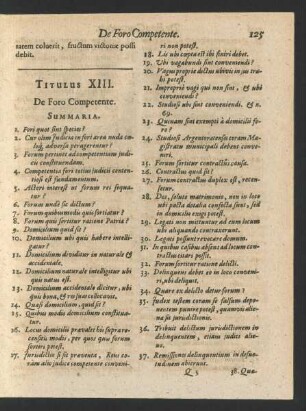 De Foro Competente. 125
tatem colueris, fructum victoriæ possi
debit.
TITULUS XIII.
De Foro Competente.
SUMMARIA.
1. Fori quot sint species?
2. Cur olim Judicia in fori area unda
3. Forum pertinet ad competentiam judicii
constituendam.
4. Competentia fori totius judicii
fundamentum.
5. Actori interest ut forum rei sequatur?
6. Forum unde sic dictum?
7. Forum quibus modis quis sortiatur?
8. Forum quis sortitur ratione Patriæ?
9. Domicilium quid sit?
10. Domicilium ubi quis habere intelligatur?
11. Domicilium dividitur in naturale &
accidentale.
12. Domicilium naturale intelligitur ubi
quis natus est.
13. Domicilium accidentale dicitur, ubi
quis bona, & res suas collocavit.
14. Quasi domicilium, quod sit?
15. Quibus modis domicilium constituatur.
16. Locus domicilii prævalet his
modis, per quos quis forum
sortitur.
17. Jurisdictio si præventa, Reus coram
alio judice competente
ri non potest.
18. Lis ubi cœpta est ibi finiri debet.
19. Ubi vagabundi sint conveniendi?
20. Vagus proprie dictus ubivis in jus trahi
potest.
21. Improprie vagi qui non sint, & ubi
conveniendi?
22. Studiosi ubi sint conveniendi, & n.
69.
23. Quinam sint exempti à domicilii foro?
24. Studiosi Argentoratenses coram Magistratu
municipali debent conveniri.
25. Forum sortitur contractus, causa.
26. Contractus quid sit?
27. Forum contractus duplex est,
28. Dos, soluto matrimonio, non in eo loco
ubi pacta dotalia confecta sint, sed
in domicilio exigi potest.
29. Legati non mittuntur ad eum locum
ubi aliquando contraxerunt.
30. Legati possunt revocare domum.
31. An quibus casibus absens ad locum contractus
citari possit.
32. Forum sortitur ratione delicti.
33. Delinquens debet eo in loco conveniri,
ubi deliquit.
34. Quare ex delicto detur forum?
35. Judex testem coram se falsum deponentem
punire potest, quamvis alienæ
sit jurisdictionis.
36. Tribuit delictum jurisdictionem in
delinquentem, etiamsi jurisdictionis
alienæ sit.
37. Remissiones delinquentium in desuetudinem
abierunt.
Q 3 38. Qua-